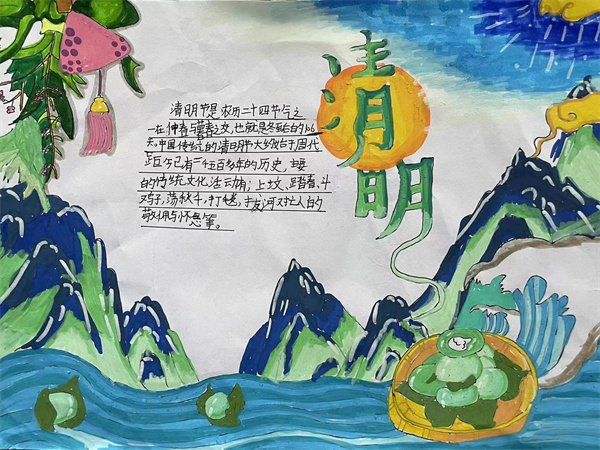 清明
清明节是农历二十四节气之
一在仲春与暮春之交,也就是冬至后的106
天。中国传统的清明节大约始于周代
距今已有二千五百多年的历史,主要
的传统文化活动有:上坟、踏青、斗
鸡子,荡秋千,打毯,拔河对亡人的
敬佣与怀念等。